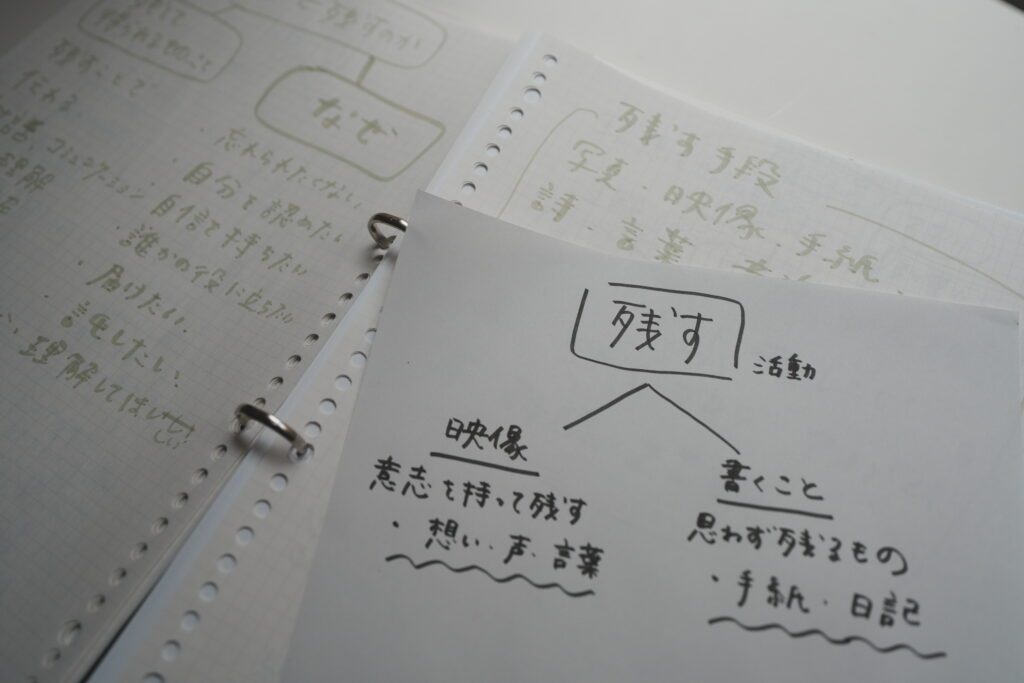 を残すのか
なぜ
残すことで
伝わる
コミュニケーション
理解
・忘れられたくない
・自分を認めたい
自信を持ちたい
・誰かの役に立ちたい
・届けたい.
・証をしたい.
理解してほしい
残す手段
写真・映像・手紙
詩・言葉
残す
活動
映像
意志を持って残す
・想い・声・言葉
書くこと
思わず残るもの
・手紙・日記